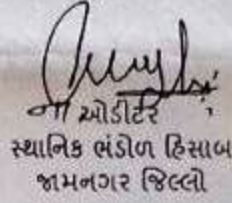 ના ઓડીટર
સ્થાનિક ભંડોળ હિસાબ
જામનગર જિલ્લો